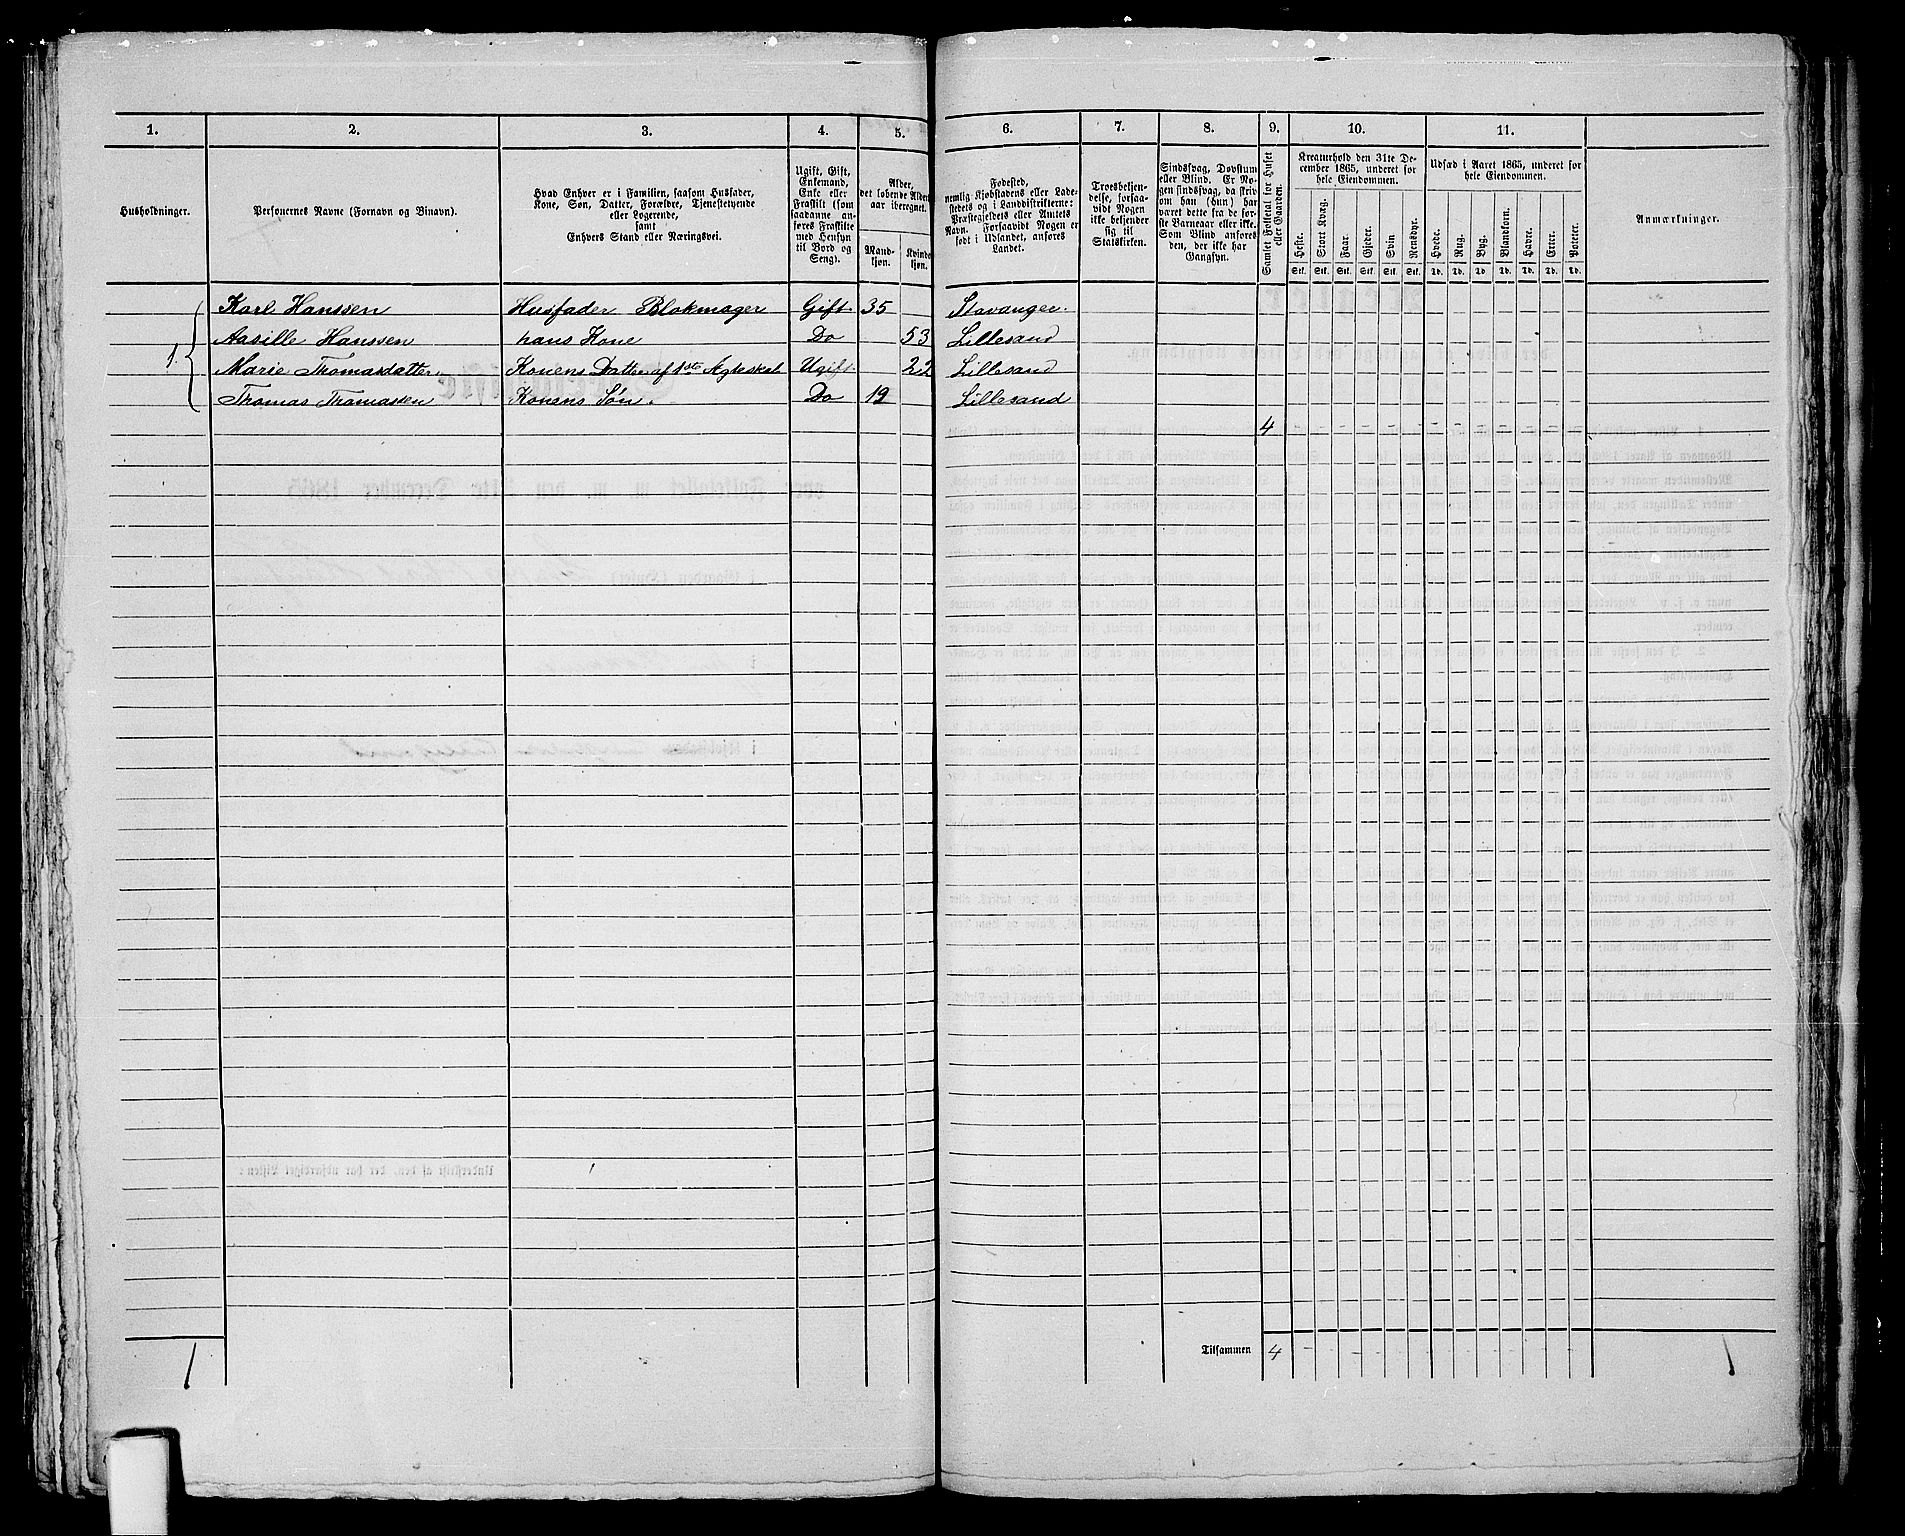 1. 2. 3. 4. 5. 6. 7. 8. 9. 10. 11.
Husholdninger.
Personernes Navne (Fornavn og Binavn).
Hvad Enhver er i Familien, saasom Husfader,
Kone, Søn, Datter, Forældre, Tjenestetyende
eller Logerende,
samt
Enhvers Stand eller Næringsvei.
Ugift, Gift,
Enkemand,
Enke eller
Fraskilt (som
saadanne an-
føres Fraskilte
med Hensyn
til Bord og
Seng).
Alder,
det løbende Alders-
aar iberegnet.
Mand-
kjøn.
Kvinde-
kjøn.
Fødested,
nemlig Kjøbstadens eller Lade-
stedets og i Landdistrikterne:
Præstegjeldets eller Amtets
Navn. Forsaavidt Nogen er
født i Udlandet, anføres
Landet.
Troesbekjen-
delse, forsaa-
vidt Nogen
ikke bekjender
sig til
Statskirken.
Sindssvag, Døvstum
eller Blind. Er No-
gen sindssvag, da skriv
om han (hun) har
været dette fra de før-
ste Barneaar eller ikke.
Som Blind anføres
den, der ikke har
Gangsyn.
Samlet Folketal for Huset
eller Gaarden.
Kreaturhold den 31te De-
cember 1865, underet for
hele Eiendommen.
Heste. Stort Kvæg. Faar. Gjeder. Svin Rensdyr.
Stk. Stk. Stk. Stk. Stk. Stk.
Udsæd i Aaret 1865, underet for
hele Eiendommen.
Hvede. Rug. Byg. Blandkorn. Havre. Erter. Poteter.
Td. Td. Td. Td. Td. Td. Td.
Anmærkninger.
Karl Hanssen Husfader Blokmager Gift 35 Stavanger.
Aasille Hanssen hans Kone Do 53 Lillesand
1. Marie Thomasdatter Konens Datter af 1ste Ægteskab Ugift 22 Lillesand
Thomas Thomassen Konens Søn. Do 19 Lillesand
4 – – – – – – – – – – – – –
Tilsammen 4
1 1